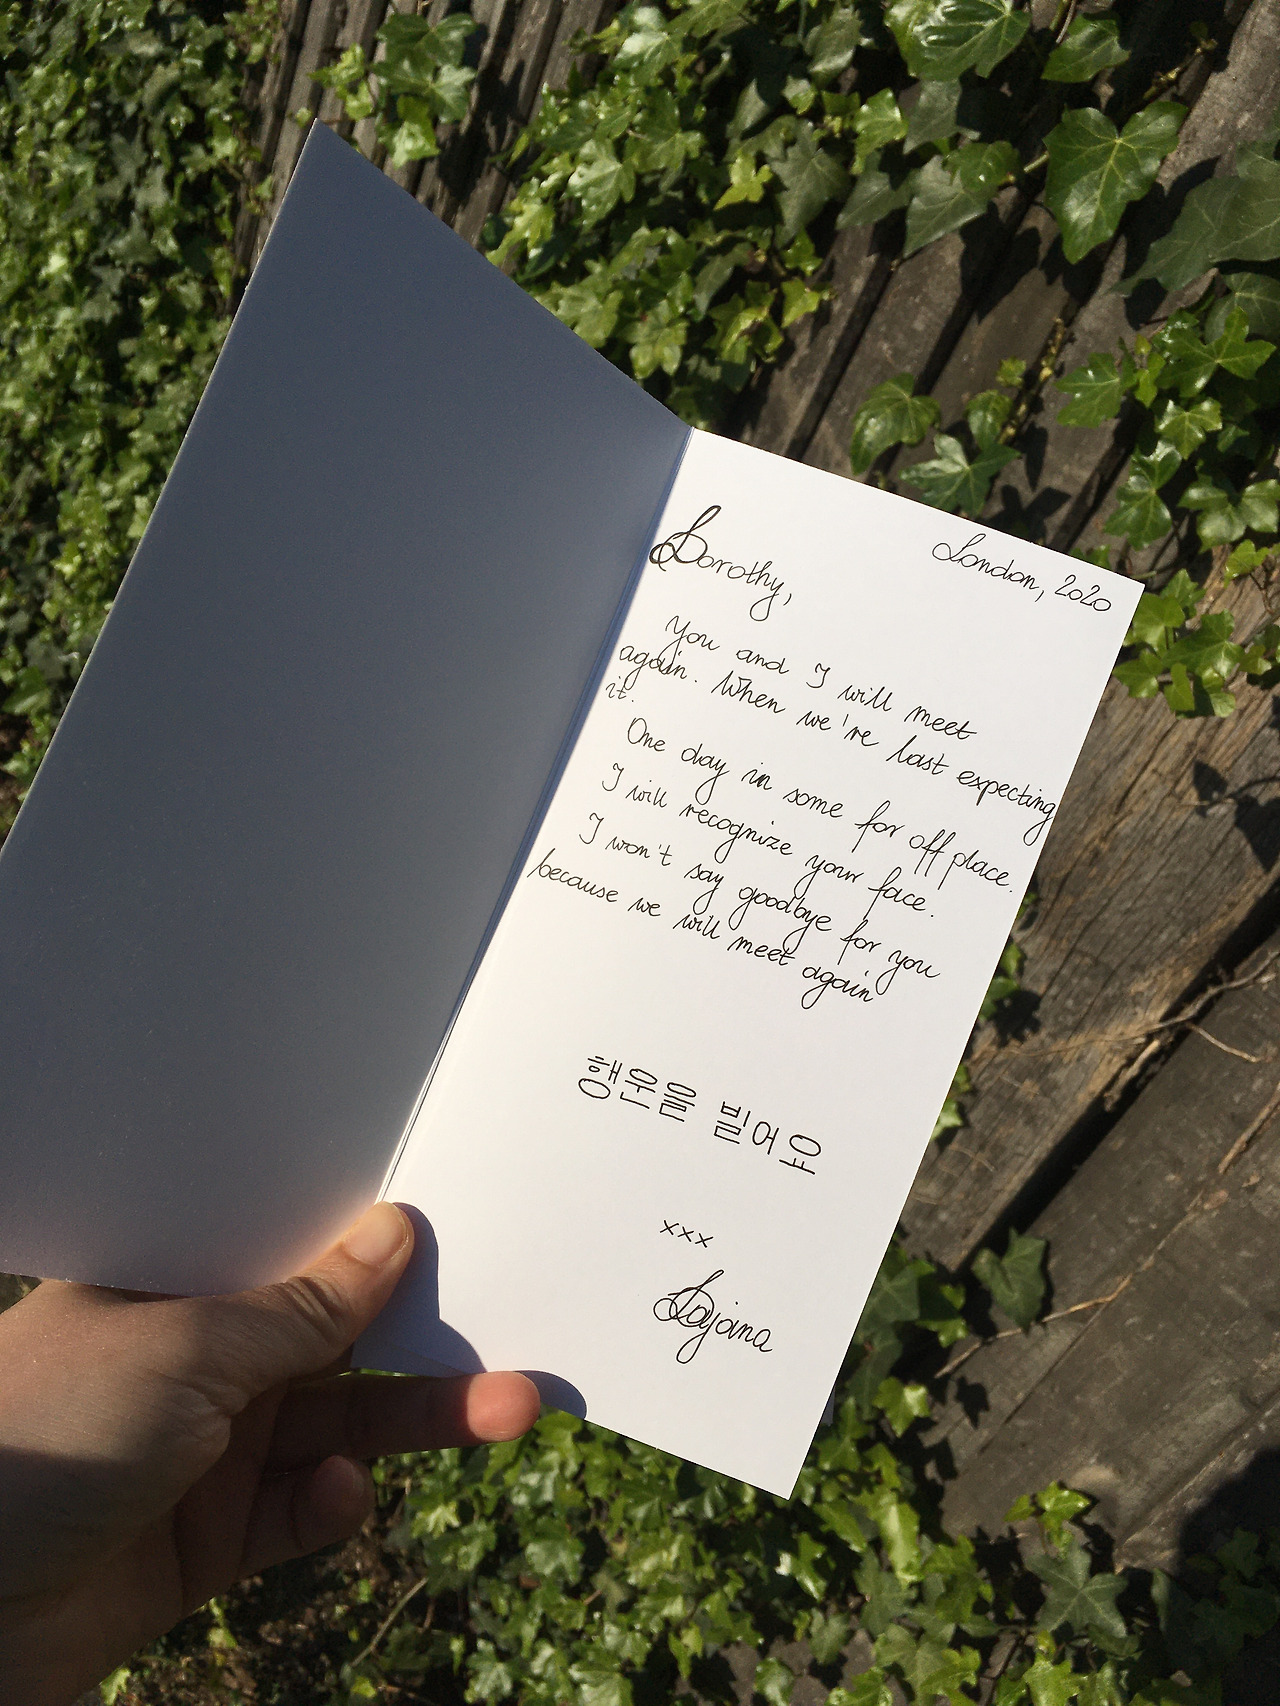 London, 2020
Dorothy,
You and I will meet
again. When we're last expecting
it.
One day in some far off place.
I will recognize your face.
I won't say goodbye for you
because we will meet again
행운을 빌어요
xxx
Dajana